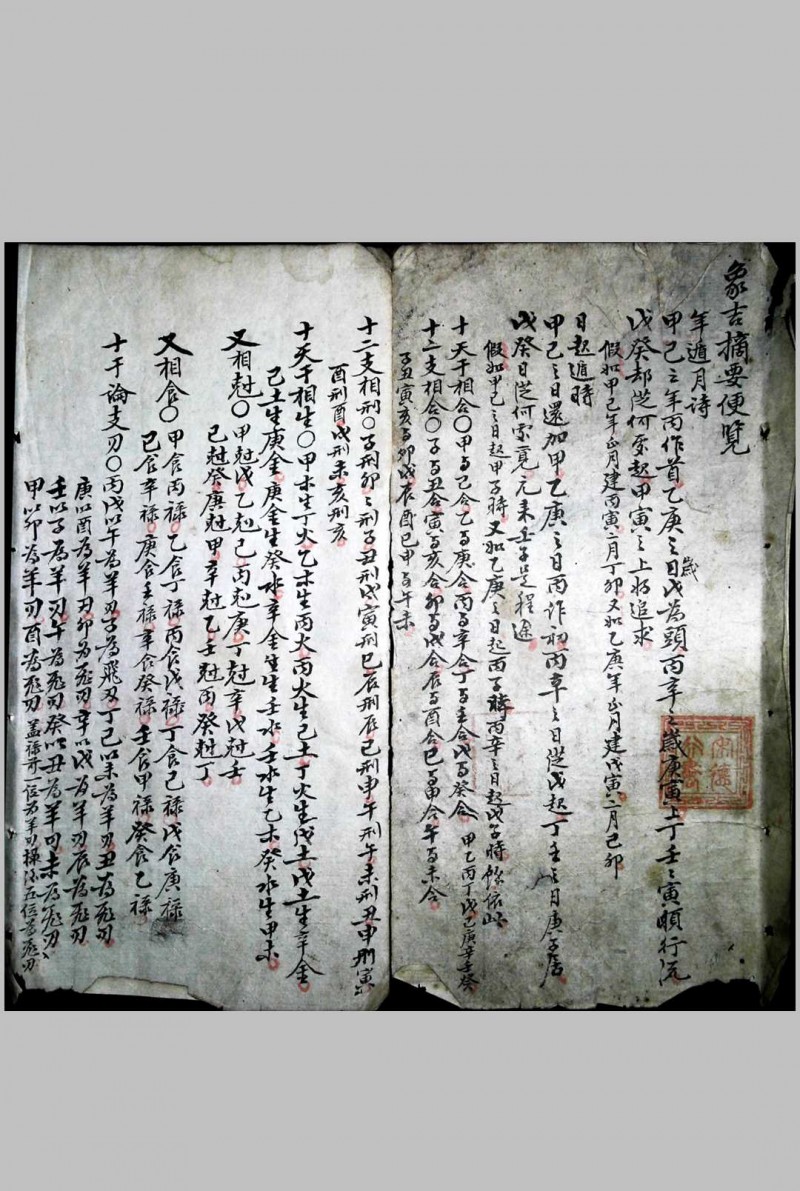 象吉摘要便覽
年遁月詩
甲己之年丙作首乙庚之歲戊為頭丙辛之歲庚寅上丁壬壬寅順行流
戊癸却從何處起甲寅之上好追求
假如甲己年正月建丙寅二月丁卯又如乙庚年正月建戊寅二月己卯
日起遁時
甲己之日還加甲乙庚之日丙作初丙辛之日從戊起丁壬之日庚子居
戊癸日從何處覓元來壬子是程途
假如甲己之日起甲子時又如乙庚之日起丙子時丙辛之日起戊子時餘依此
十天干相合〇甲与己合乙与庚合丙与辛合丁与壬合戊与癸合 甲乙丙丁戊己庚辛壬癸
十二支相合〇子与丑合寅与亥合卯与戌合辰与酉合巳与申合午与未合
子丑寅亥与卯戌辰酉巳申与午未
十二支相刑〇子刑卯卯刑子丑刑戌寅刑巳辰刑辰巳刑申午刑午未刑丑申刑寅
酉刑酉戌刑未亥刑亥
十天干相生〇甲木生丁火乙木生丙火丙火生己土丁火生戊土戊土生辛金
己土生庚金庚金生癸水辛金生壬水壬水生乙木癸水生甲木
又相尅〇甲尅戊乙尅己丙尅庚丁尅辛戊尅壬
己尅癸庚尅甲辛尅乙壬尅丙癸尅丁
又相食〇甲食丙祿乙食丁祿丙食戊祿丁食己祿戊食庚祿
己食辛祿庚食壬祿辛食癸祿壬食甲祿癸食乙祿
十干論支刃〇丙戊以午為羊刃子為飛刃丁己以未為羊刃丑為飛刃
庚以酉為羊刃卯為飛刃辛以戌為羊刃辰為飛刃
壬以子為羊刃午為飛刃癸以丑為羊刃未為飛刃
甲以卯為羊刃酉為飛刃 蓋祿前一位為羊刃 為飛刃